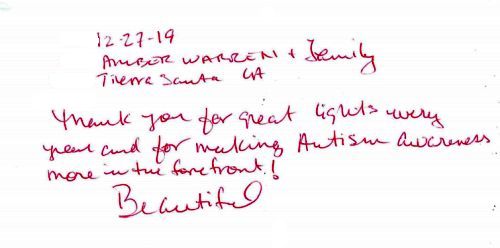 12-27-19
AMBER WARREN + Family
Tierra Santa CA
Thank you for great lights every
year and for making Autism awareness
more in the forefront!
Beautiful